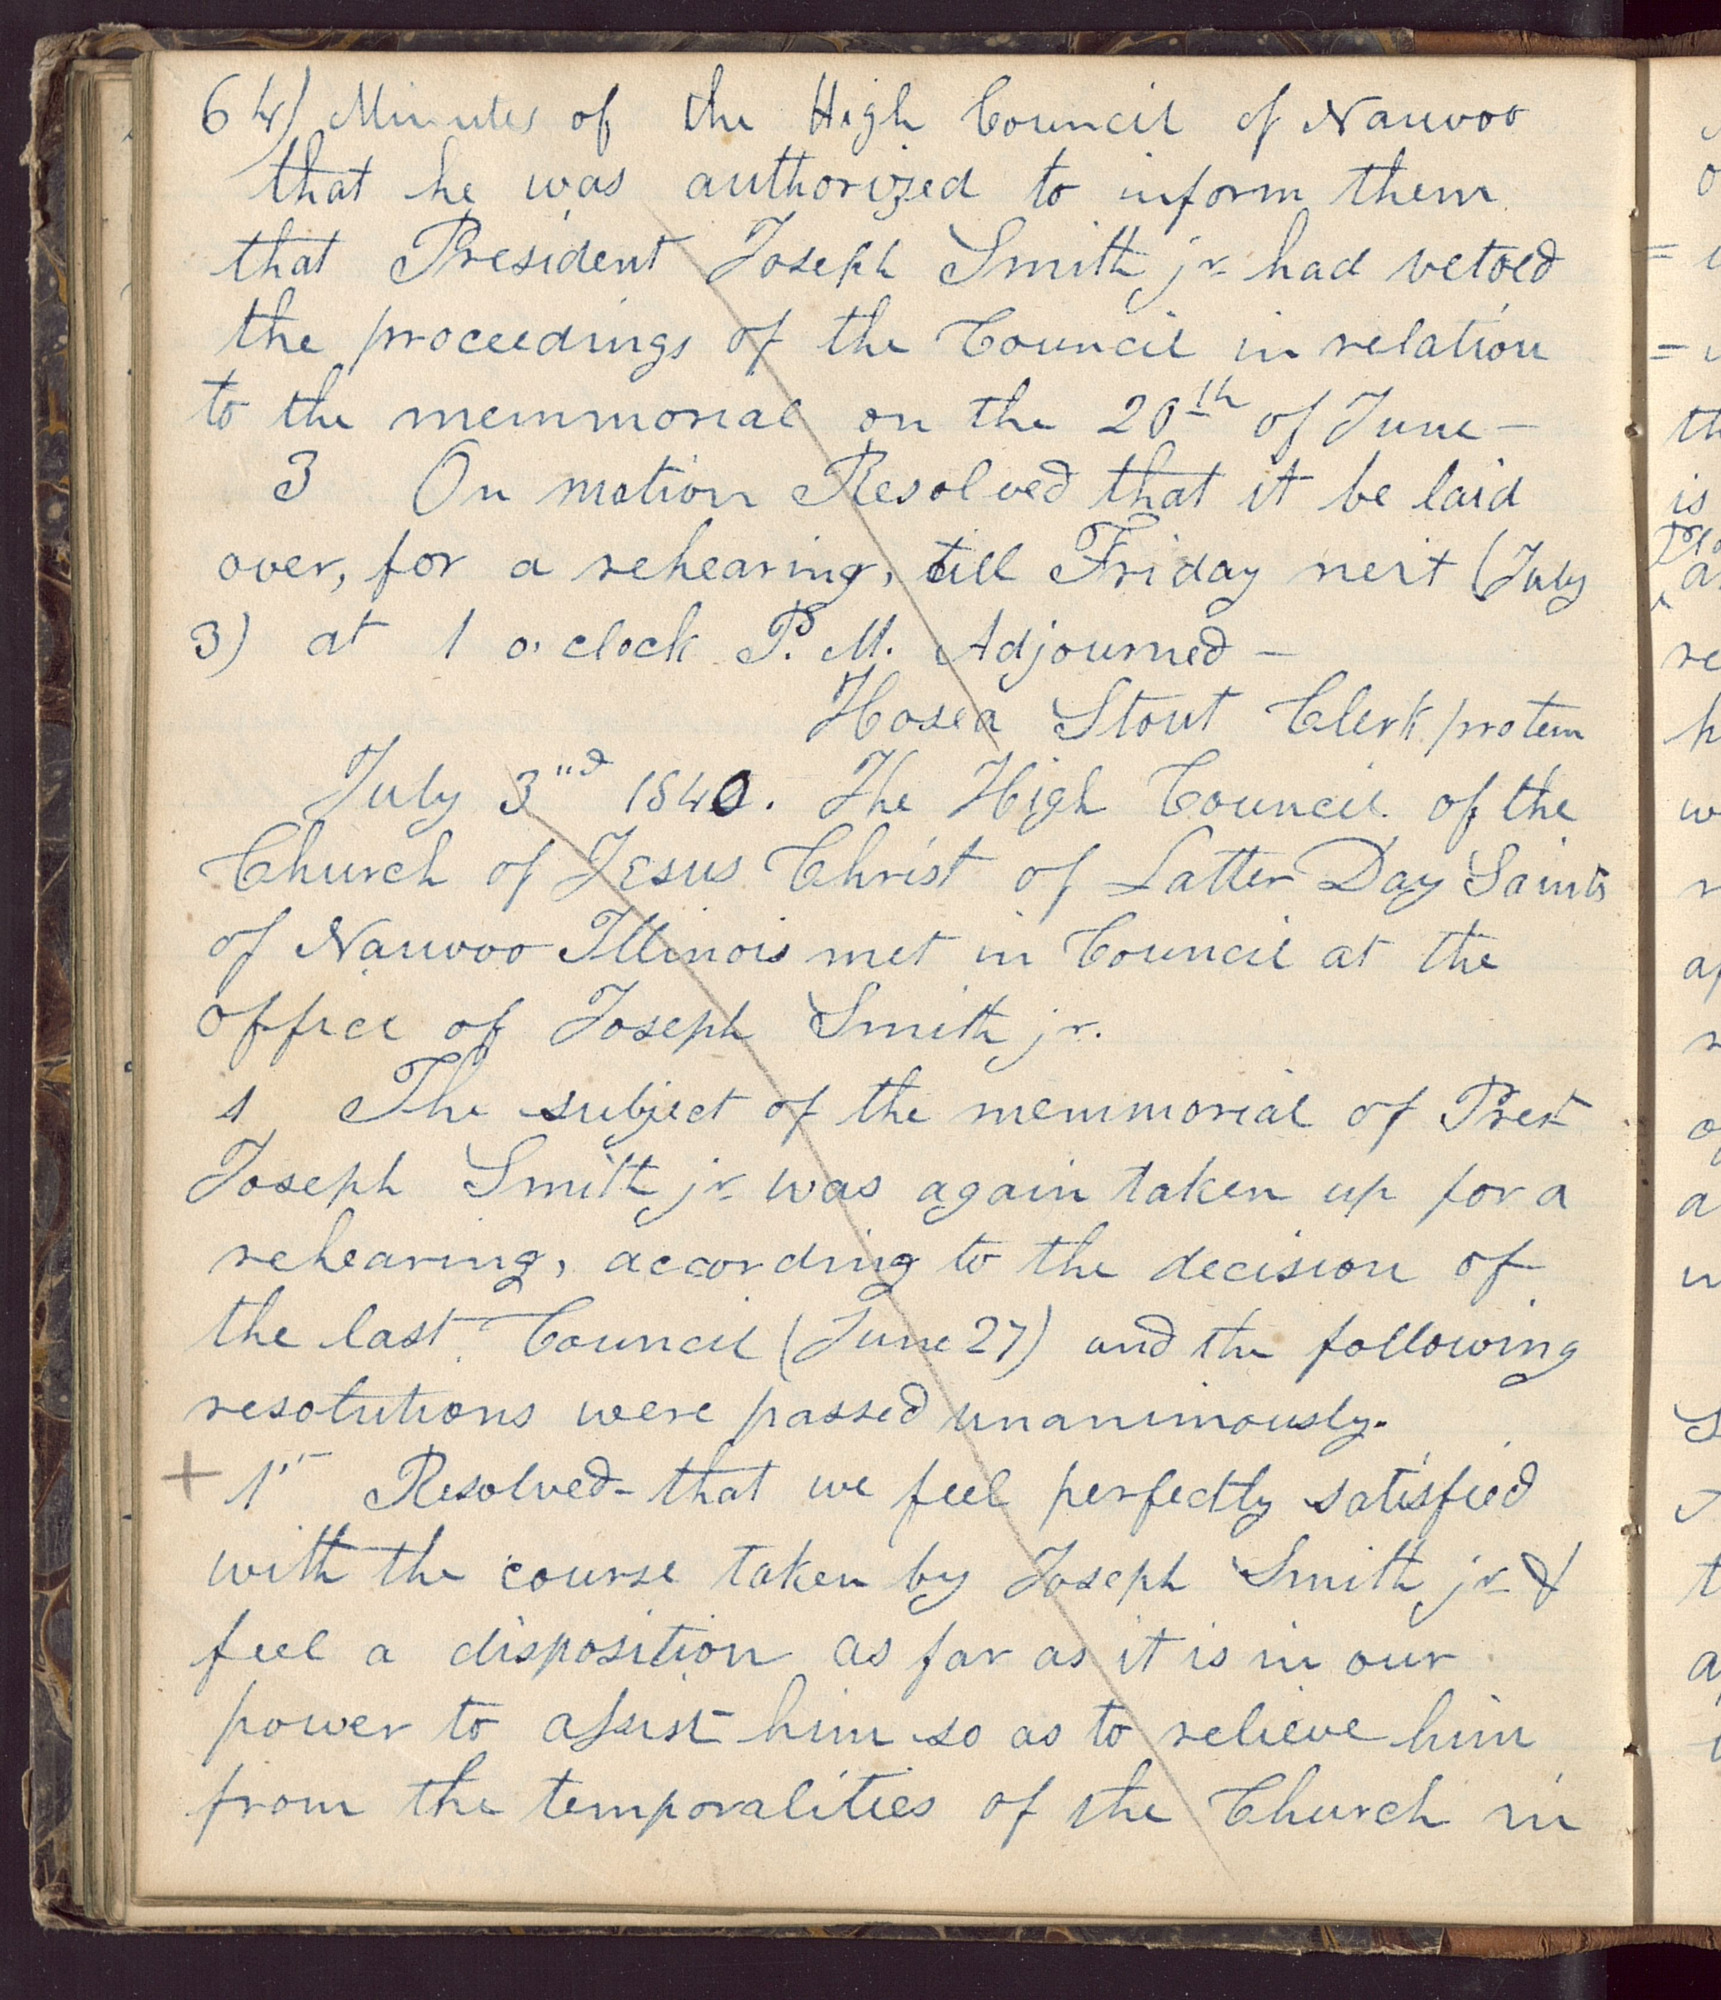 64) Minutes of the High Council of Nauvoo
that he was authorized to inform them
that President Joseph Smith jr had vetoed
the proceedings of the Council in relation
to the memmorial on the 20th of June —
3 On motion Resolved that it be laid
over, for a rehearing, till Friday next (July
3) at 1 o, clock P. M. Adjourned —
Hosea Stout Clerk protem
July 3nd 1840. The High Council of the
Church of Jesus Christ of Latter Day Saints
of Nauvoo Illinois met in Council at the
office of Joseph Smith jr.
1 The subject of the memmorial of Prest
Joseph Smith jr was again taken up for a
rehearing, according to the decision of
the last Council (June 27) and the following
resolutions were passed unanimously.
+ 1st Resolved – that we feel perfectly satisfied
with the course taken by Joseph Smith jr &
feel a disposition as far as it is in our
power to assist him so as to relieve him
from the temporalities of the Church in